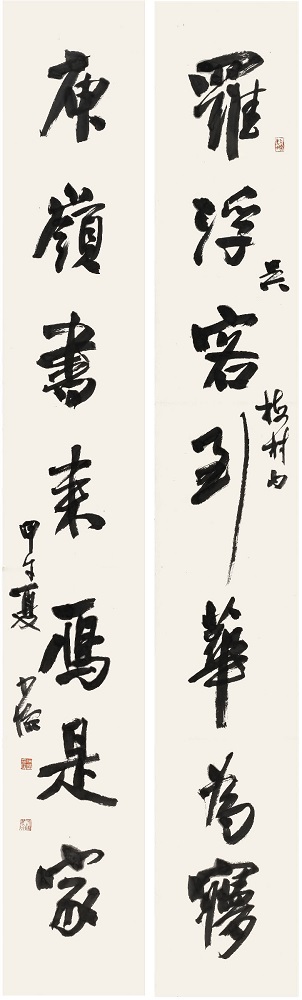 羅浮客到華為夢
吳梅村句
庾嶺書來鴈是家
甲午夏